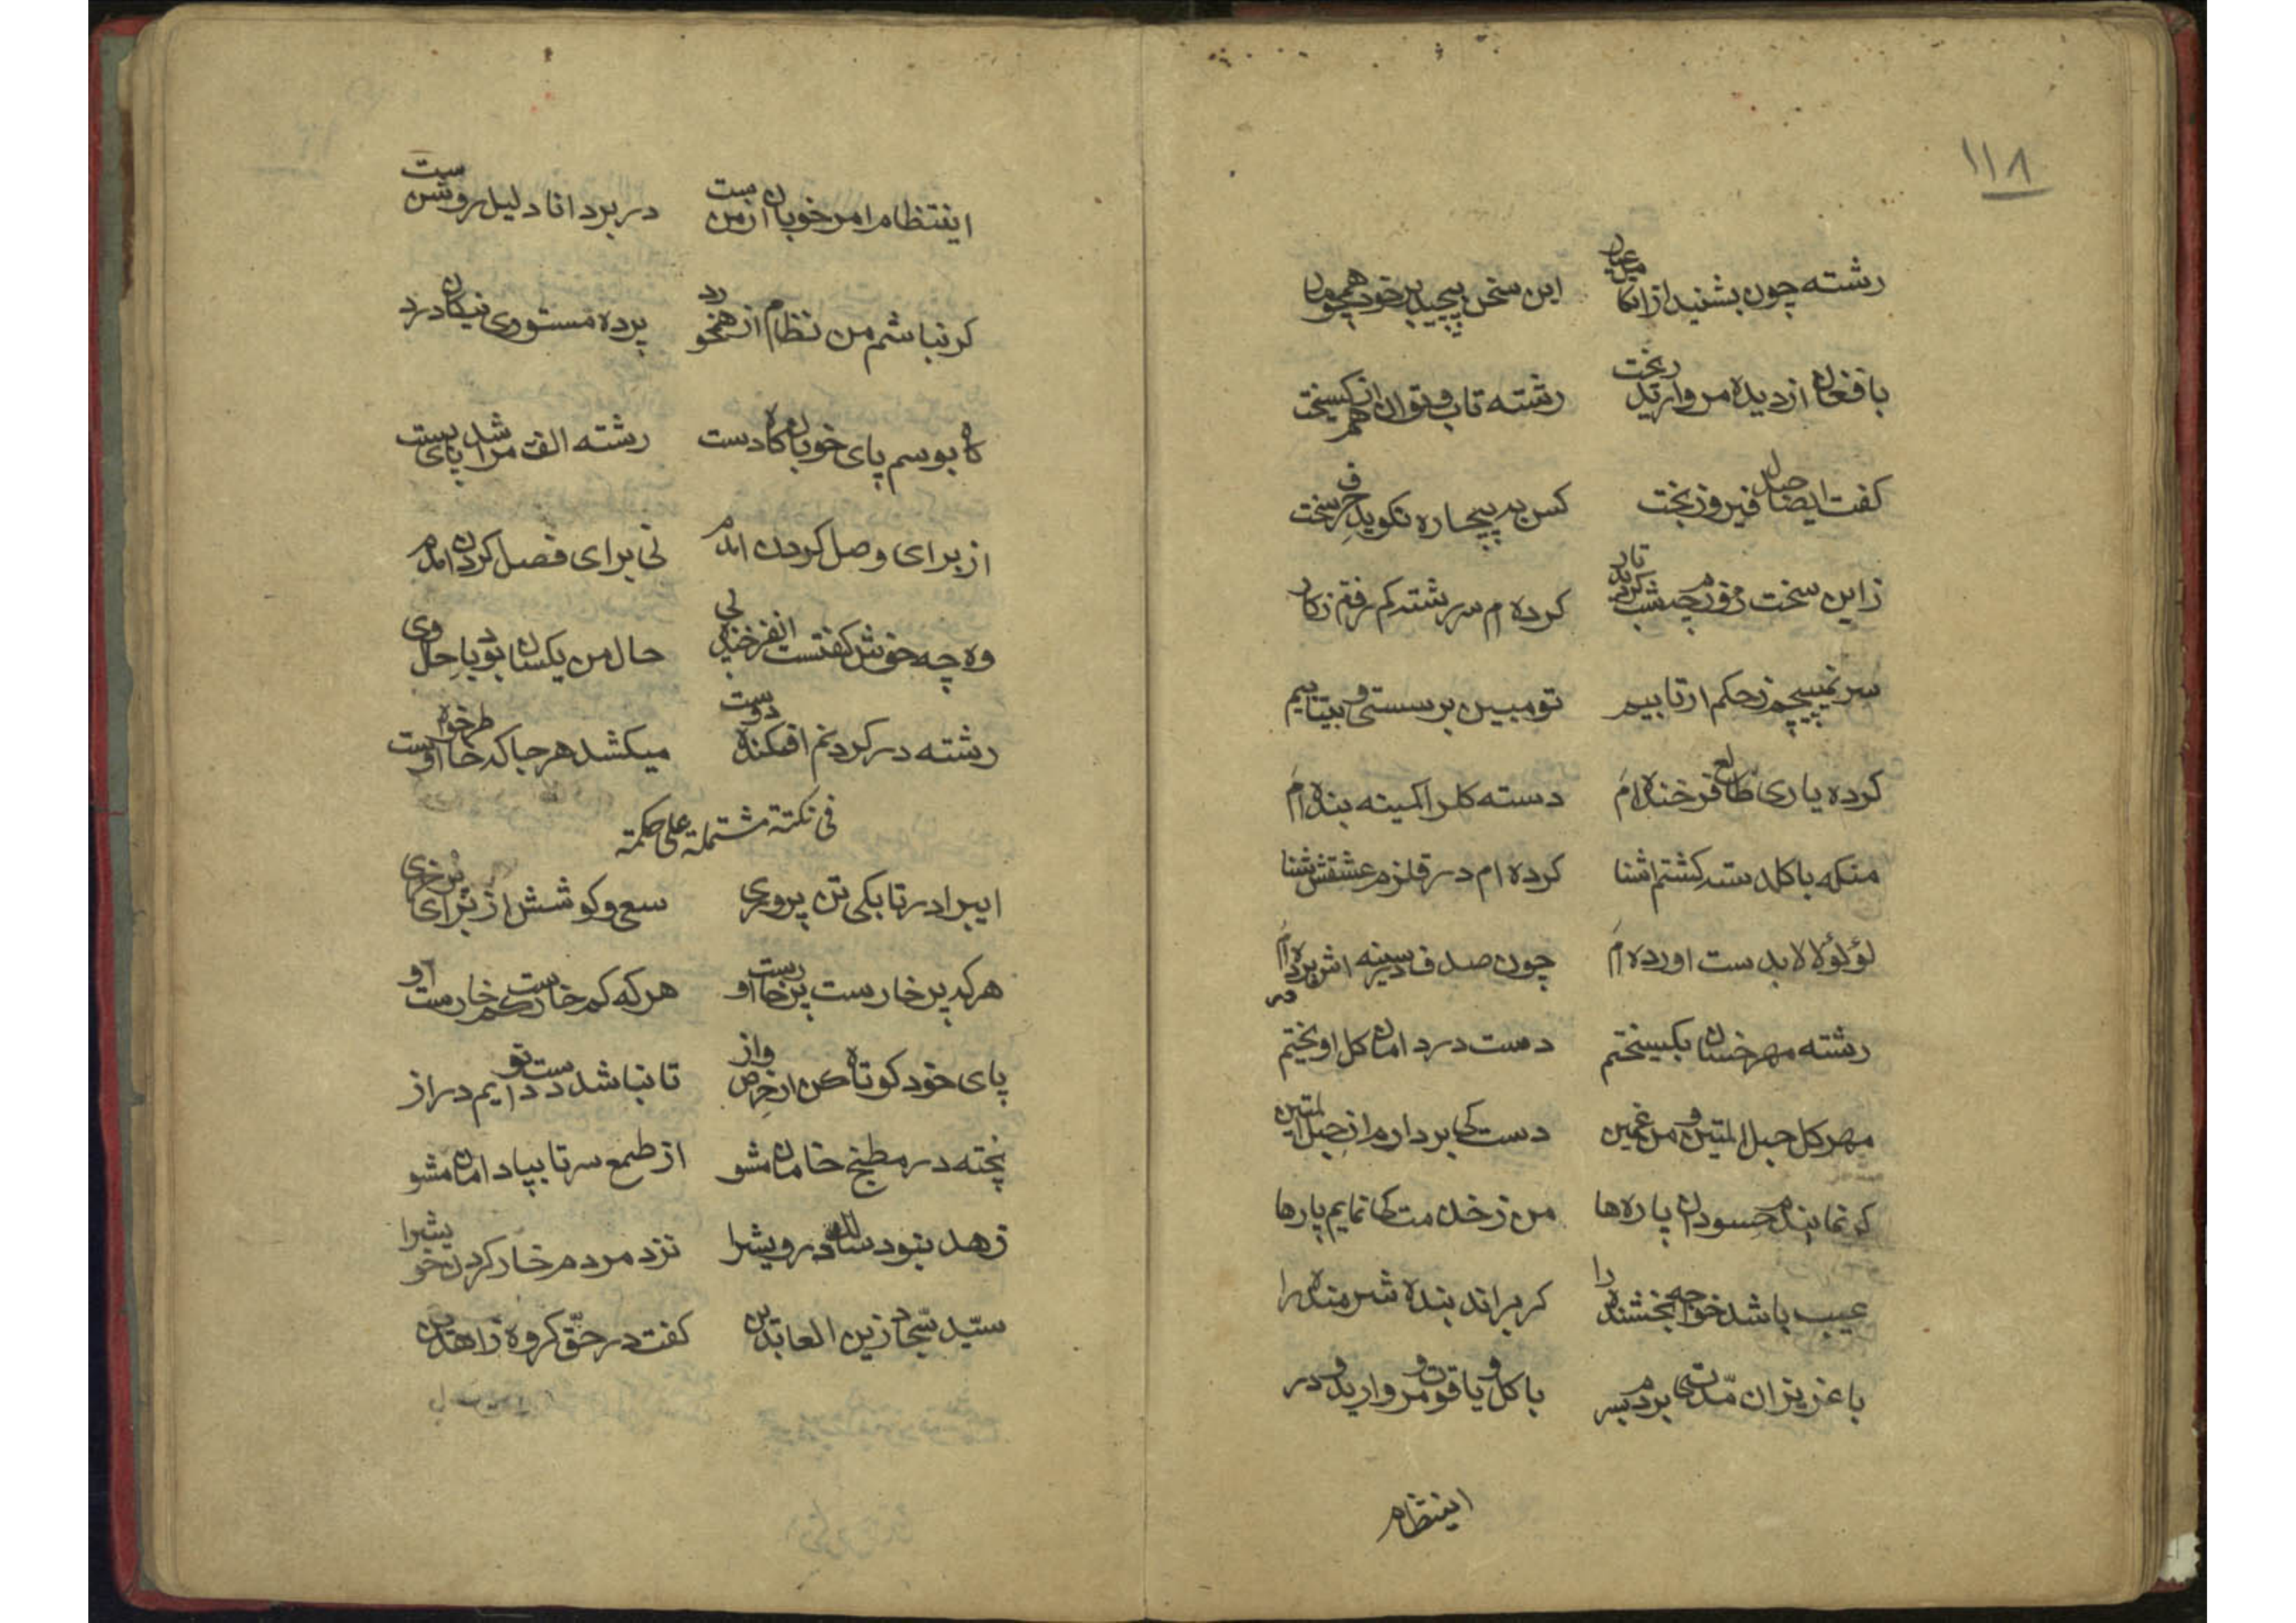 ١١٨
رشته چون بشنید از انکا میل عیان این سخن پیچید بر خود همچو مان
با فغان از دیده مروارید ریخت رشته تاب و توان از هم کسیخت
کفت ایضا حبل فیروز بخت کس به پیچاره نکوید حرف سخت
زاین سخت روزم چه شب کردید تار کرده ام سر رشته کم رفتم ز کار
سر نمیپیچم ز حکم ار تابیم تو مبین بر سستی و بیتابیم
کرده یاری طالع فرخنده ام دسته کلرا کمینه بنده ام
منکه با کلدسته کشتم اشنا کرده ام در قلزم عشقش شنا
لؤلؤ لالا بدست اورده ام چون صدف در سینه اش پرورده ام
رشته مهر خسان بکسیختم دست در دامان کل اویختم
مهر کل حبل المتین و من غمین دست کی بردارم از حبل المتین
کر نمایندم حسودان پاره ها من ز خدمت کی نمایم پارها
عیب باشد خواجه بخشنده را کر براند بنده شرمنده را
با عزیزان مدتی بردم بسر با کل و یاقوت و مروارید و در
اینتظام
اینتظام امر خوبان از من ست در بر دانا دلیل روشن ست
کر نباشم من نظام از هم خورد پرده مستوری نیکان درد
که بوسم پای خوبان کاه دست رشته الفت مرا شد پای بست
از برای وصل کردن امدم نی برای فصل کردن امدم
وه چه خوش کفتست ان فرخنده پی حال من یکسان بود با حال وی
رشته در کردنم افکنده دوست میکشد هر جا که خاطر خواه اوست
فی نکتة مشتملة علی حکمة
ایبرادر تا بکی تن پروری سعی و کوشش از برای پر خری
هر که پر خارست پر خارست او هر که کم خارست کم خارست او
پای خود کوتاه کن از حرص و از تا نباشد دست تو دایم دراز
پخته در مطبخ خامان مشو از طمع سر تا بپا دامان مشو
زهد بنود سالک درویشرا نزد مردم خار کردن خویشرا
سیّد سجّاد زین العابدین کفت در حقّ کروه زاهدین